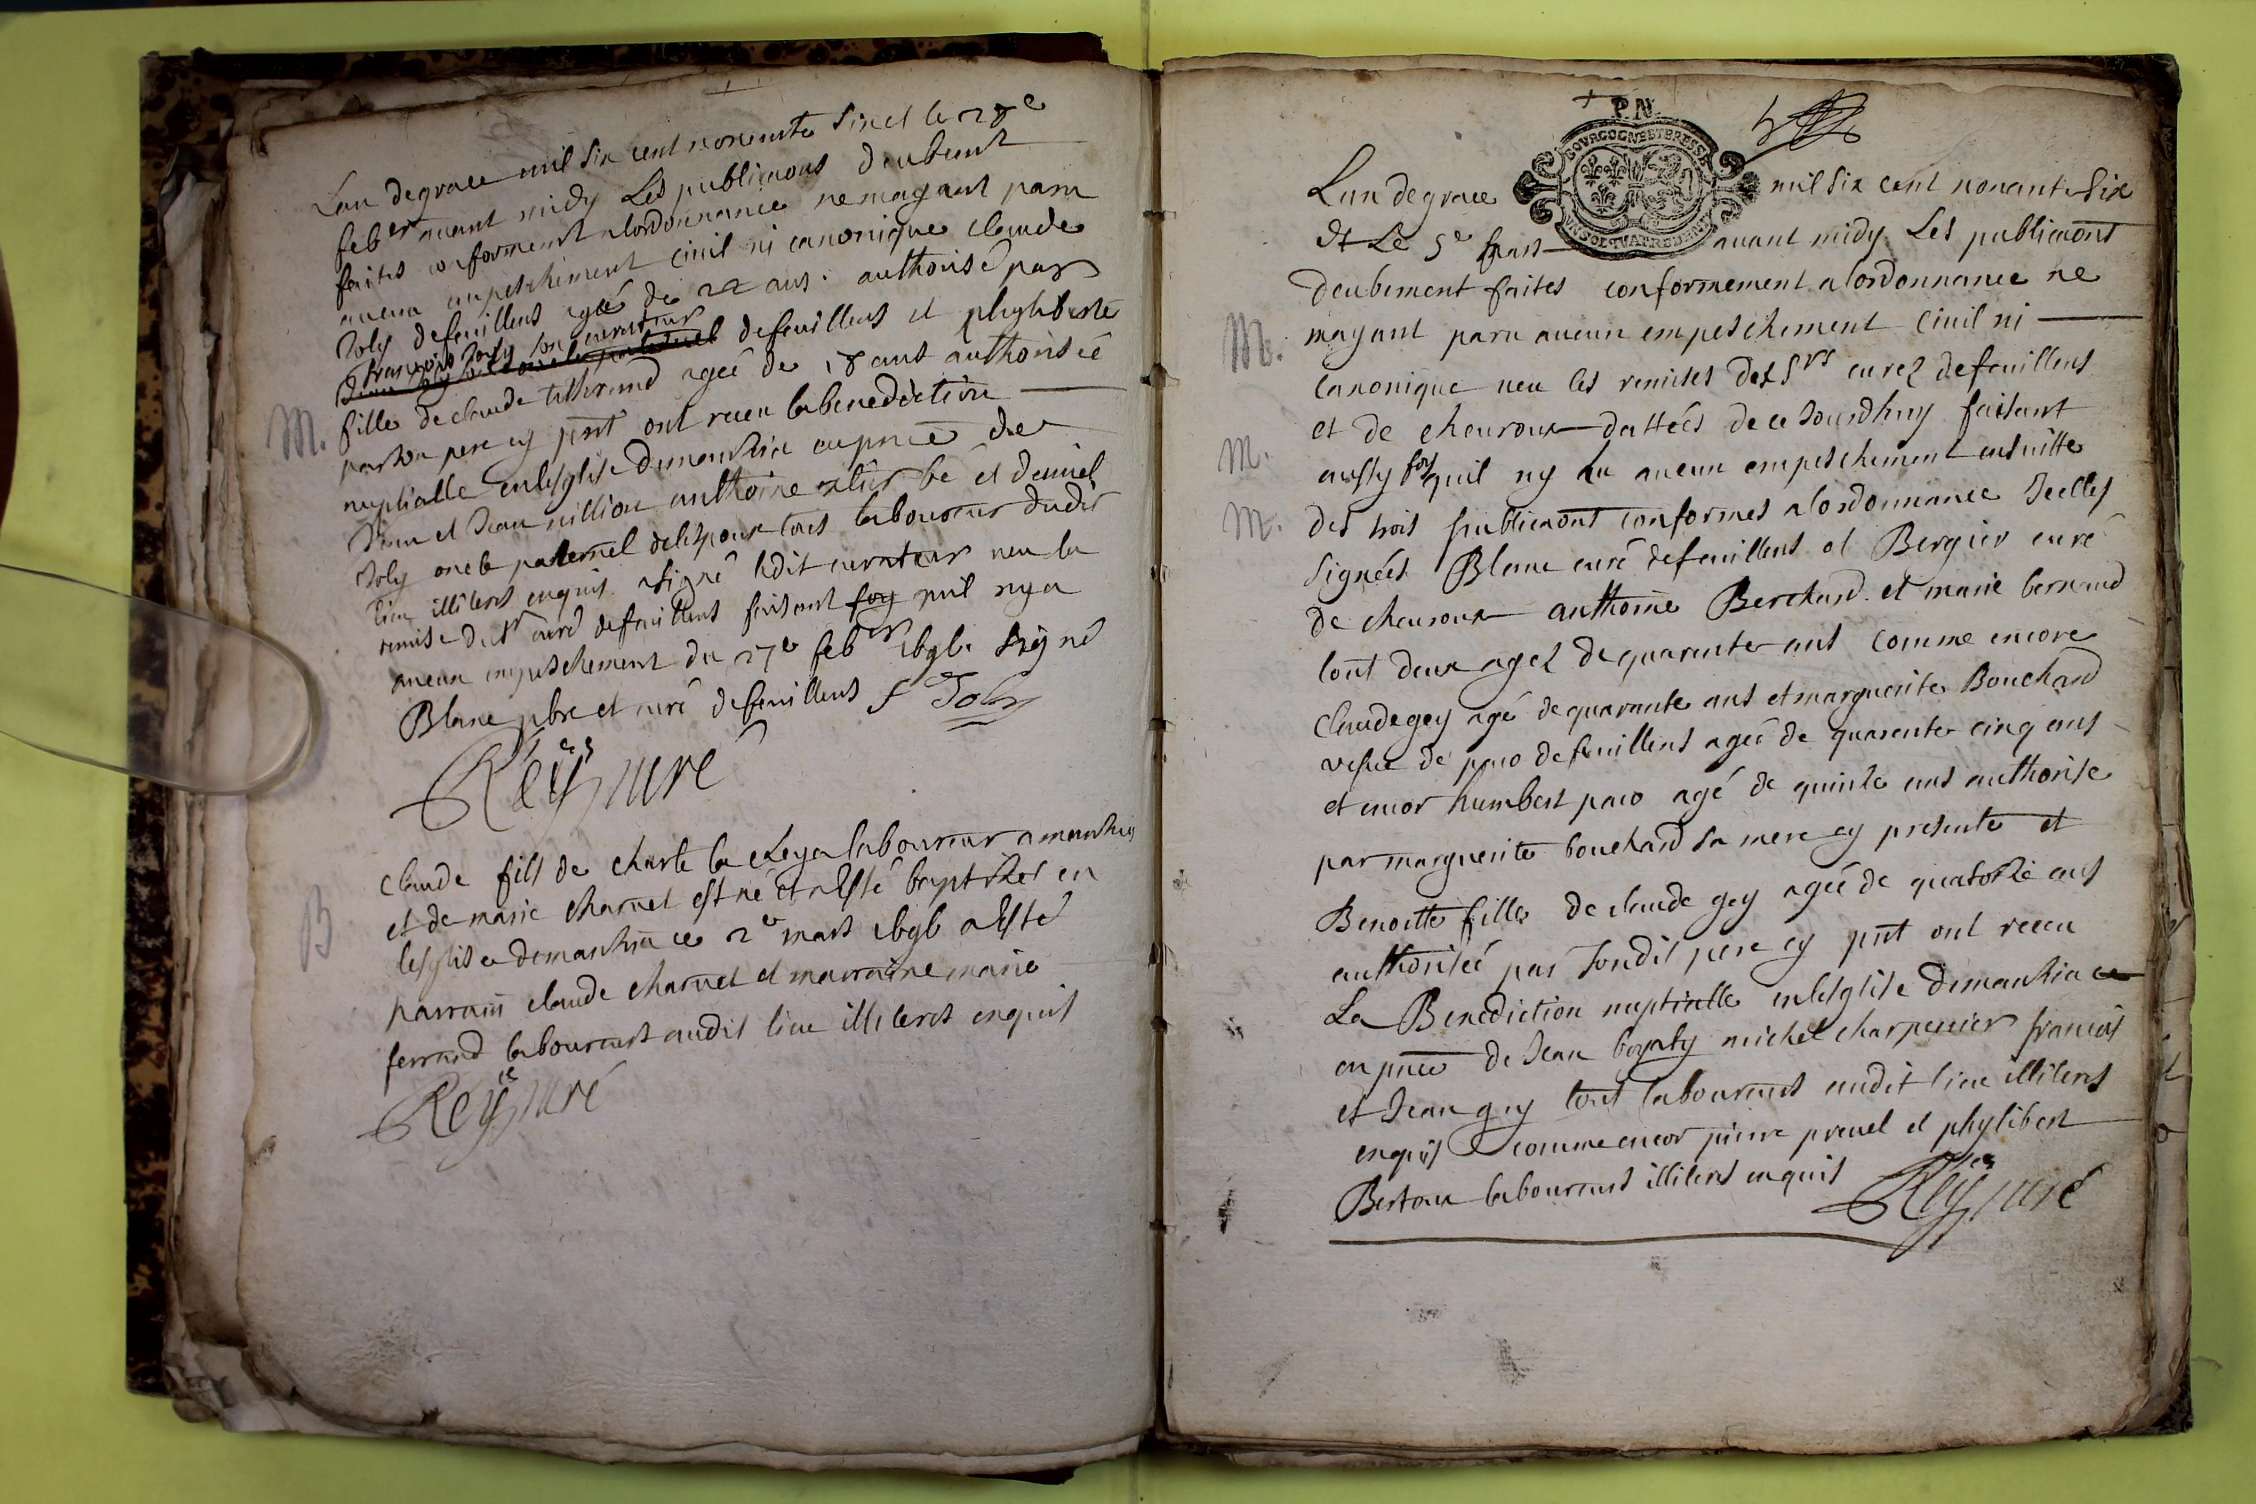 Lan de grace mil six cent nonente six et le 28e
feber avant midy Les publicaons deubemt
faites conformemt a lordonnance ne mayant paru
aucun empeschement civil ni canonique claude
Joly de feuillens agé de 22 ans authorisé par
francois Joly son curateur
de feuillens et phyliberte
fille de claude tithrand agée de 18 ans authorisée
par son pere cy pnt ont receu la benediction
nuptialle en lesglise de manhia en pnce de
Jean et Jean nillion anthoine et daniel
Joly oncle paternel de lespoux tous laboureur dudit
lieu illiteres enquis a signé ledit curateur veu la
remise du sr curé de feuillens faisant foy quil ny a
aucun empeschement du 27e feber 1696 signé
Blanc pbre et curé de feuillens f Joly
Reÿ curé
M.
claude fils de charle la cheya laboureur a manhia
et de marie charnet est né et a esté baptisé en
lesglise de manhia ce 2e mars 1696 a esté
parrain claude charnet et marraine marie
ferrand laboureurs audit lieu illiteres enquis
Reÿ curé
B
P.N.
BOURGOGNE ET BRESSE
UN SOL QUATRE DEN
Lan de grace mil six cent nonante six
Et Le 5e mars avant midy Les publicaont
deubement faites conformement a lordonnance ne
mayant paru aucun empeschement civil ni
canonique veu les remises des Srs curez de feuillens
et de chevroux dattées de ce Jourdhuy faisant
aussy foy quil ny au aucun empeschement ensuitte
des trois publicaont conformes a lordonnance Icelles
signées Blanc curé de feuillens et Bergier curé
de chevroux anthoine Berchard et marie bernard
tout deux agez de quarente ans comme encore
claude gey agé de quarante ans et marguerite Bouchard
vefve de paco de feuillens agée de quarente cinq ans
et encor humbert paco agé de quinze ans authorise
par marguerite bouchard sa mere cy presente et
Benoitte fille de claude gey agée de quatorze ans
authorisée par sondit pere cy pnt ont receu
La Benediction nuptialle en lesglise de manhia
en pnce de Jean michel charpentier francois
et Jean gey tout laboureurs audit lieu illiteres
enquis comme encor pierre prevel et phylibert
Bertoux laboureurs illiteres enquis
Reÿ curé
M.
M.
M.